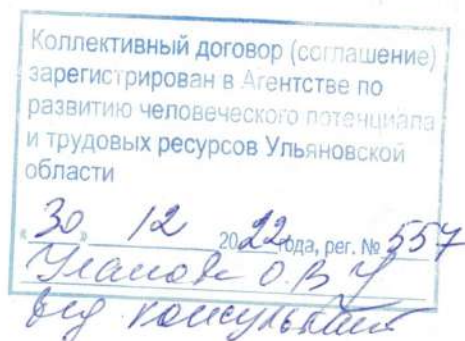 Коллективный договор (соглашение)
зарегистрирован в Агентстве по
развитию человеческого потенциала
и трудовых ресурсов Ульяновской
области
«30» 12 2022 года, рег. № 557
О.В.
вед консультант